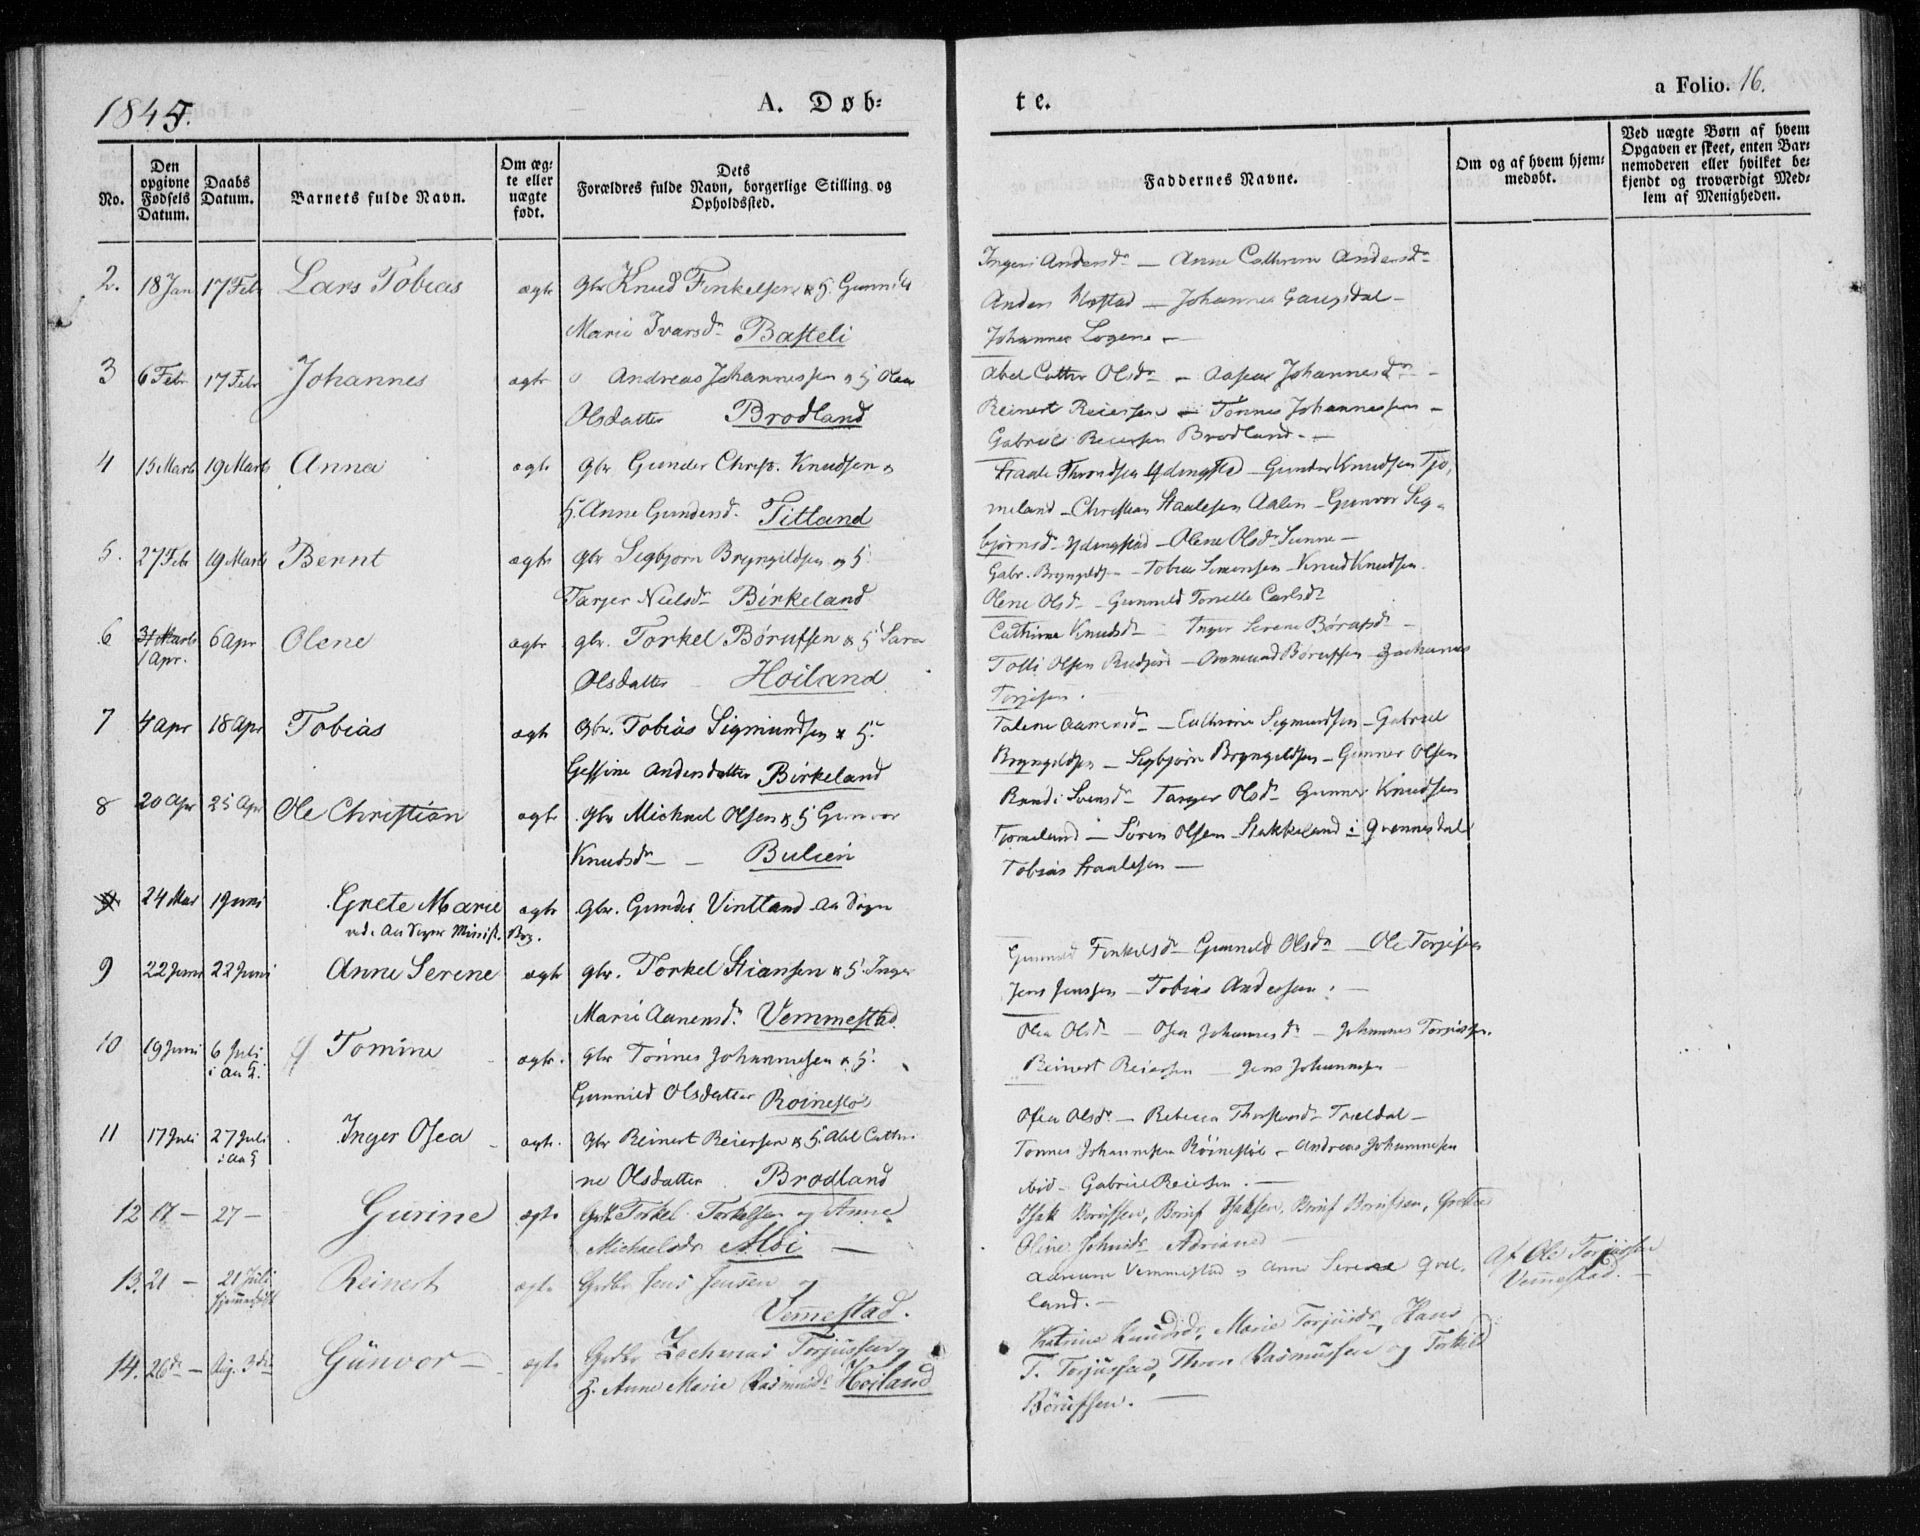 1845.
A. Døb:
te.
a Folio. 16.
No.
Den opgivne Fødsels Datum.
Daabs Datum.
Barnets fulde Navn.
Om æg: te eller uægte født.
Dets Forældres fulde Navn, borgerlige Stilling og Opholdssted.
Faddernes Navne.
Om og af hvem hjem: medøbt.
Ved uægte Børn af hvem Opgaven er skeet, enten Bar: nemoderen eller hvilket be: kjendt og troværdigt Med: lem af Menigheden.
2. 18 Jan 17 Febr Lars Tobias ægte Gbr Knud Finkelsen & H. Gunnild
Marie Ivarsdr Basteli
Ingeri Andersdr — Anne Cathrine Andersdr
Anders — Johannes Gaugsdal —
Johannes Logene —
3 6 Febr 17 Febr Johannes ægte Andreas Johannessen & H Olea
Olsdatter Brodland
Abel Cathr Olsdr — Aasea Johannesdr —
Reinert Reiersen — Tønnes Johannessen —
Gabriel Reiersen Brodland —
4 15 Marts 19 Marts Anna ægte Gbr Gunder Christ. Knudsen &
H. Anne Gundersd. Titland
Staale Throndsen Ydingstad — Gunder Knudsen Tjo,
meland — Christian Staalesen Aalen — Gunvor Sig,
bjørnsd Ydingstad — Olene Olsdr Sunne —
5. 27 Febr 19 Marts Bernt ægte Gbr Sigbjørn Bryngildsen og H.
Tarjer Nielsdr Birkeland
Gabr. Bryngilds — Tobias Simonsen — Knud Knudsen
Olene Olsdr — Gunnild Tonille Carlsdr
6 31 Marts 1 Apr. 6 Apr Olene ægte gbr. Torkel Børufsen & H Sara
Olsdatter — Høiland
Cathrine Knudsdr — Inger Serene Børufsdr —
Tolli Olsen Rudjord — Aamund Børufsen — Zacharias
Torjesen.
7 4 Apr 18 Apr Tobias ægte Gbr. Tobias Sigmundsen & H.
Gessine Andersdatter Birkeland
Talene Aanensdr — Cathrine Sigmundsen — Gabriel
Bryngeldsen — Sigbjørn Bryngeldsen — Gunner Olsen
8 20 Apr 25 Apr Ole Christian ægte Gbr Michael Olsen & H Gunvor
Knudsdr — Buleen
Randi Svensdr — Tarjer Olsdr Gunner Knudsen
Tjomeland — Søren Olsen Stakkeland i Qvennesdal
Tobias Staalesen —
9. 24 Mai 1 Juni Grete Marie ægte Gbr. Gunder Vintland Aa Sogn
ved. Aa Sogns Minist. Bog.
9 22 Juni 22 Juni Anne Serene ægte gbr. Torkel Stiansen & H. Inger
Marie Aanensdr. Vemmestad
Gunnild Finkelsdr Gunnild Olsdr — Ole Torjesen
Jens Jensen — Tobias Andersen —
10 19 Juni 6 Juli i Aa K. Tomine ægte. Gbr Tønnes Johannesen & H.
Gunnild Olsdatter Roinestøl
Olea Olsdr — Osea Johannesdr — Johannes Torjusen.
Reinert Reiersen — Jens Johannesen —
11 17 Juli 27 Juli i Aa K Inger Osea ægte. Gbr Reinert Reiersen & H. Abel Cathri
ne Olsdatter Brodland
Osea Olsdr. — Rebecca Thorstensdr Trældal —
Tønnes Johannesen Røinestøl — Andreas Johannesen
ibid — Gabriel Reiersen. —
12 17 — 27 — Gurine ægte Torkel Torkelsen og Anne
Michaelsdr Moi —
Isak Børufsen, Børuf Isaksen, Børuf Børufsen, Grethe
Oline Johnsdr Adriane —
13. 21 — 21 Juli hjemmedøbt Reinert ægte Grdbr Jens Jensen og
Vemestad.
Aanene Vemmestad & Anne Serene Qvel.
land. —
Af Ole Torjusen
Vemmestad. —
14. 26de — Aug. 3die Günvor — ægte Grdbr Zacharias Torjussen og
H. Anne Marie Rasmusdr Høiland
Katrine Knudsdr, Marie Torjusdr, Hans
T. Torjussen, Thron Rasmussen og Torkild
Børufsen. —